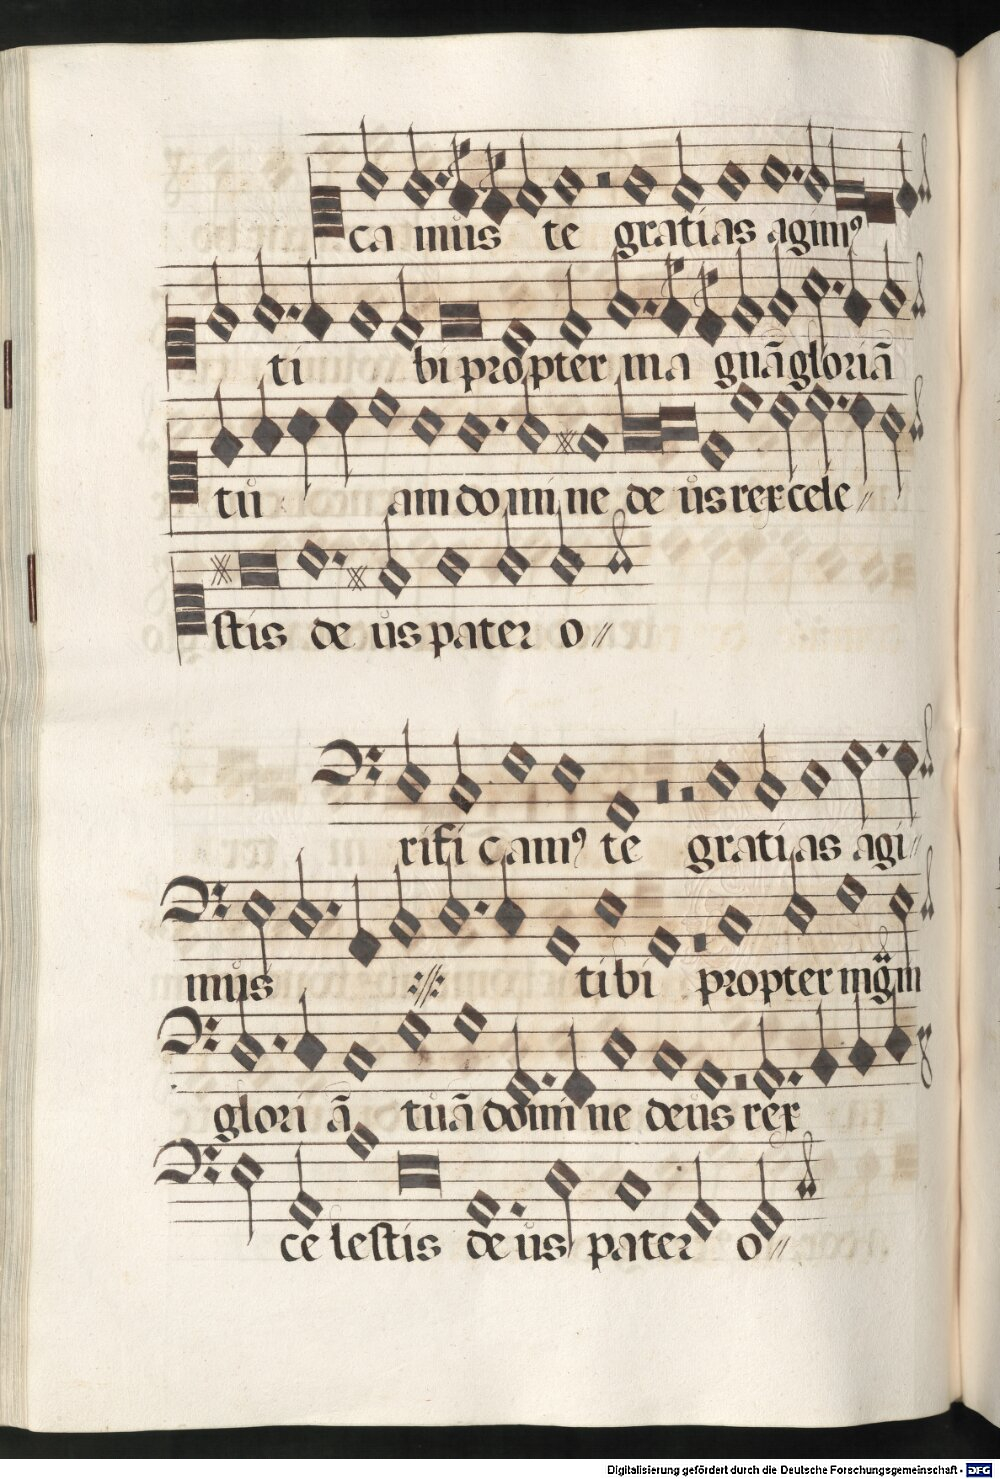 ca mus te gratias agimꝰ
ti bi propter ma gnā gloriā
tu am domi ne de us rex cele〃
stis de us pater o〃
rifi camꝰ te gratias agi〃
mus :〃: tibi propter mgm
glori ā tuā domi ne deus rex
ce lestis de us pater o〃
Digitalisierung gefördert durch die Deutsche Forschungsgemeinschaft - DFG